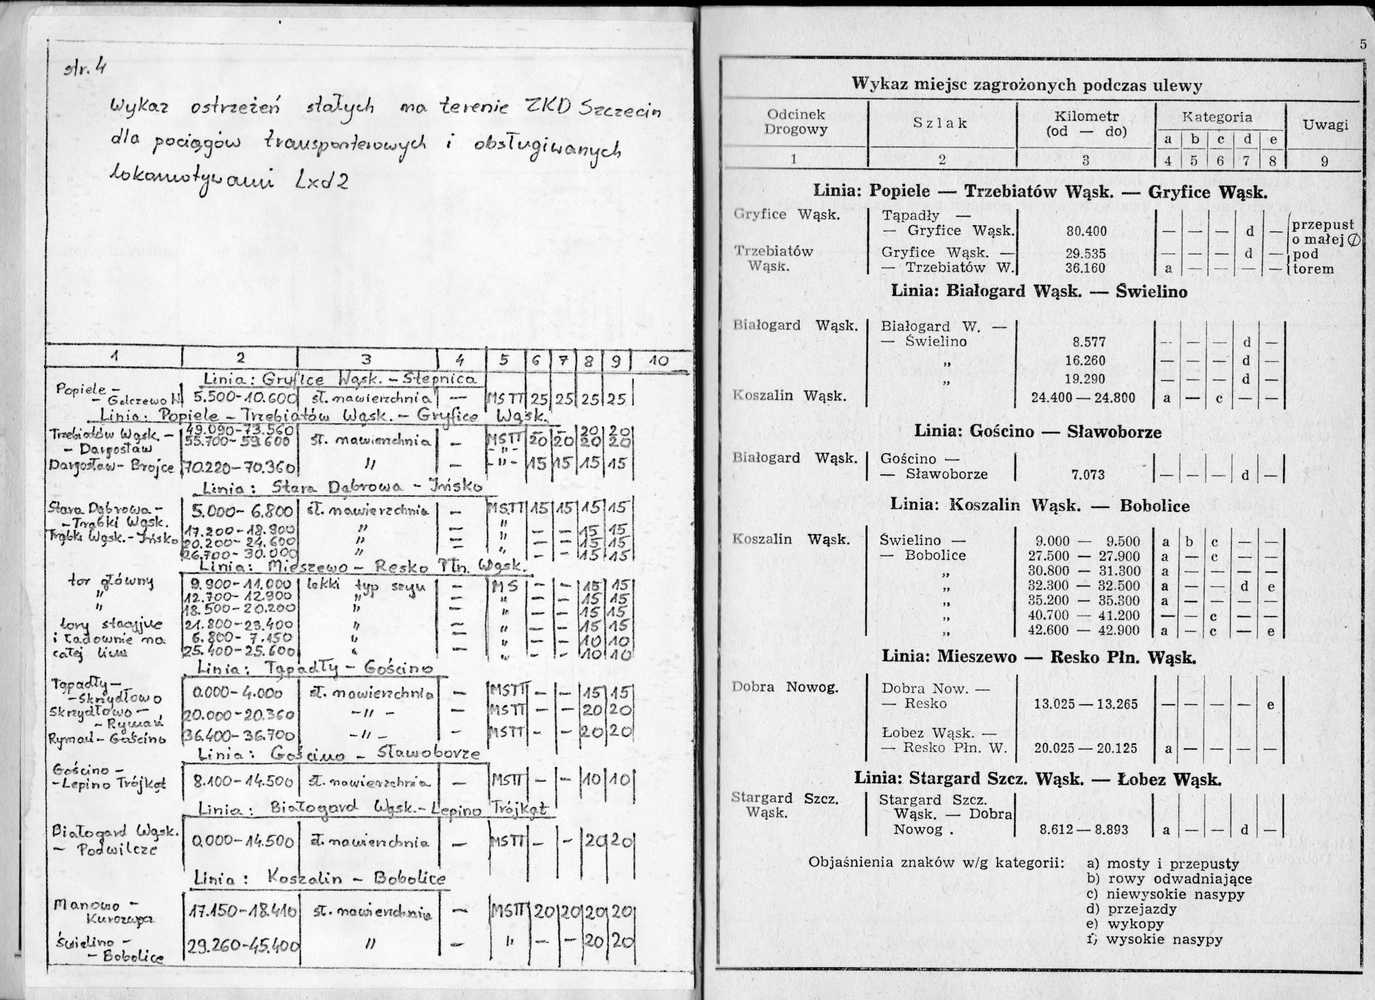 str. 4
Wykaz ostrzeżeń stałych na terenie ZKD Szczecin
dla pociągów transporterowych i obsługiwanych
lokomotywami Lxd2
1 2 3 4 5 6 7 8 9 10
Linia: Gryfice Wąsk. – Stepnica
Popiele –
– Golczewo W 5.500-10.600 sł. nawierzchnia — MSTT 25 25 25 25
Linia: Popiele – Trzebiatów Wąsk. – Gryfice Wąsk.
Trzebiatów Wąsk. – 49.090-73.560 – – 20 20
– Dargosław 55.700-59.600 sł. nawierzchnia — MSTT 20 20 20 20
Dargosław – Brojce 70.220-70.360 " — -"- 15 15 15 15
Linia: Stara Dąbrowa – Ińsko
Stara Dąbrowa – 5.000-6.800 sł. nawierzchnia — MSTT 15 15 15 15
– Trąbki Wąsk. 17.200-18.900 " — " — — 15 15
Trąbki Wąsk. – Ińsko 20.200-24.600 " — " — — 15 15
26.700-30.000 " — " — — 15 15
Linia: Mieszewo – Resko Płn. Wąsk.
tor główny 9.900-11.000 lekki typ szyn — MS — — 15 15
" 12.700-12.900 " — " — — 15 15
" 18.500-20.200 " — " — — 15 15
tory stacyjne 21.800-23.400 " — " — — 15 15
i ładownie na 6.800-7.150 " — " — — 10 10
całej linii 25.400-25.600 " — " — — 10 10
Linia: Tąpadły – Gościno
Tąpadły –
– Skrzydłowo 0.000-4.000 sł. nawierzchnia — MSTT — — 15 15
Skrzydłowo –
– Rymań 20.000-20.360 -"- — MSTT — — 20 20
Rymań – Gościno 36.400-36.700 -"- — MSTT — — 20 20
Linia: Gościno – Sławoborze
Gościno –
– Lepino Trójkąt 8.100-14.500 sł. nawierzchnia — MSTT — — 10 10
Linia: Białogard Wąsk. – Lepino Trójkąt
Białogard Wąsk.
– Podwilcze 0.000-14.500 sł. nawierzchnia — MSTT — — 20 20
Linia: Koszalin – Bobolice
Manowo –
Kurozwęcz 17.150-18.410 sł. nawierzchnia — MSTT 20 20 20 20
Świelino –
– Bobolice 29.260-45.400 " — " — — 20 20
5
Wykaz miejsc zagrożonych podczas ulewy
Odcinek Drogowy Szlak Kilometr (od — do) Kategoria Uwagi
a b c d e
1 2 3 4 5 6 7 8 9
Linia: Popiele — Trzebiatów Wąsk. — Gryfice Wąsk.
Gryfice Wąsk. Tąpadły —
— Gryfice Wąsk. 80.400 — — — d — przepust
o małej ∅
Trzebiatów Gryfice Wąsk. — 29.535 — — — d — pod
Wąsk. — Trzebiatów W. 36.160 a — — — — torem
Linia: Białogard Wąsk. — Świelino
Białogard Wąsk. Białogard W. —
— Świelino 8.577 — — — d —
„ 16.260 — — — d —
„ 19.290 — — — d —
Koszalin Wąsk. 24.400 — 24.800 a — c — —
Linia: Gościno — Sławoborze
Białogard Wąsk. Gościno —
— Sławoborze 7.073 — — — d —
Linia: Koszalin Wąsk. — Bobolice
Koszalin Wąsk. Świelino — 9.000 — 9.500 a b c — —
— Bobolice 27.500 — 27.900 a — c — —
„ 30.800 — 31.300 a — — — —
„ 32.300 — 32.500 a — — d e
„ 35.200 — 35.300 a — — — —
„ 40.700 — 41.200 — — c — —
„ 42.600 — 42.900 a — c — e
Linia: Mieszewo — Resko Płn. Wąsk.
Dobra Nowog. Dobra Now. —
— Resko 13.025 — 13.265 — — — — e
Łobez Wąsk. —
— Resko Płn. W. 20.025 — 20.125 a — — — —
Linia: Stargard Szcz. Wąsk. — Łobez Wąsk.
Stargard Szcz. Stargard Szcz.
Wąsk. Wąsk. — Dobra
Nowog . 8.612 — 8.893 a — — d —
Objaśnienia znaków w/g kategorii: a) mosty i przepusty
b) rowy odwadniające
c) niewysokie nasypy
d) przejazdy
e) wykopy
f) wysokie nasypy